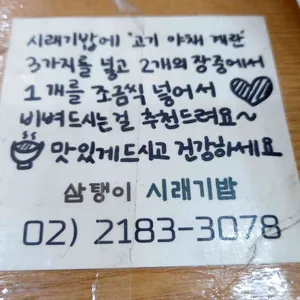 시래기밥에 '고기 야채 계란'
3가지를 넣고 2개의 장중에서
1개를 조금씩 넣어서
비벼드시는걸 추천드려요~
맛있게드시고 건강하세요
삼탱이 시래기밥
02) 2183-3078